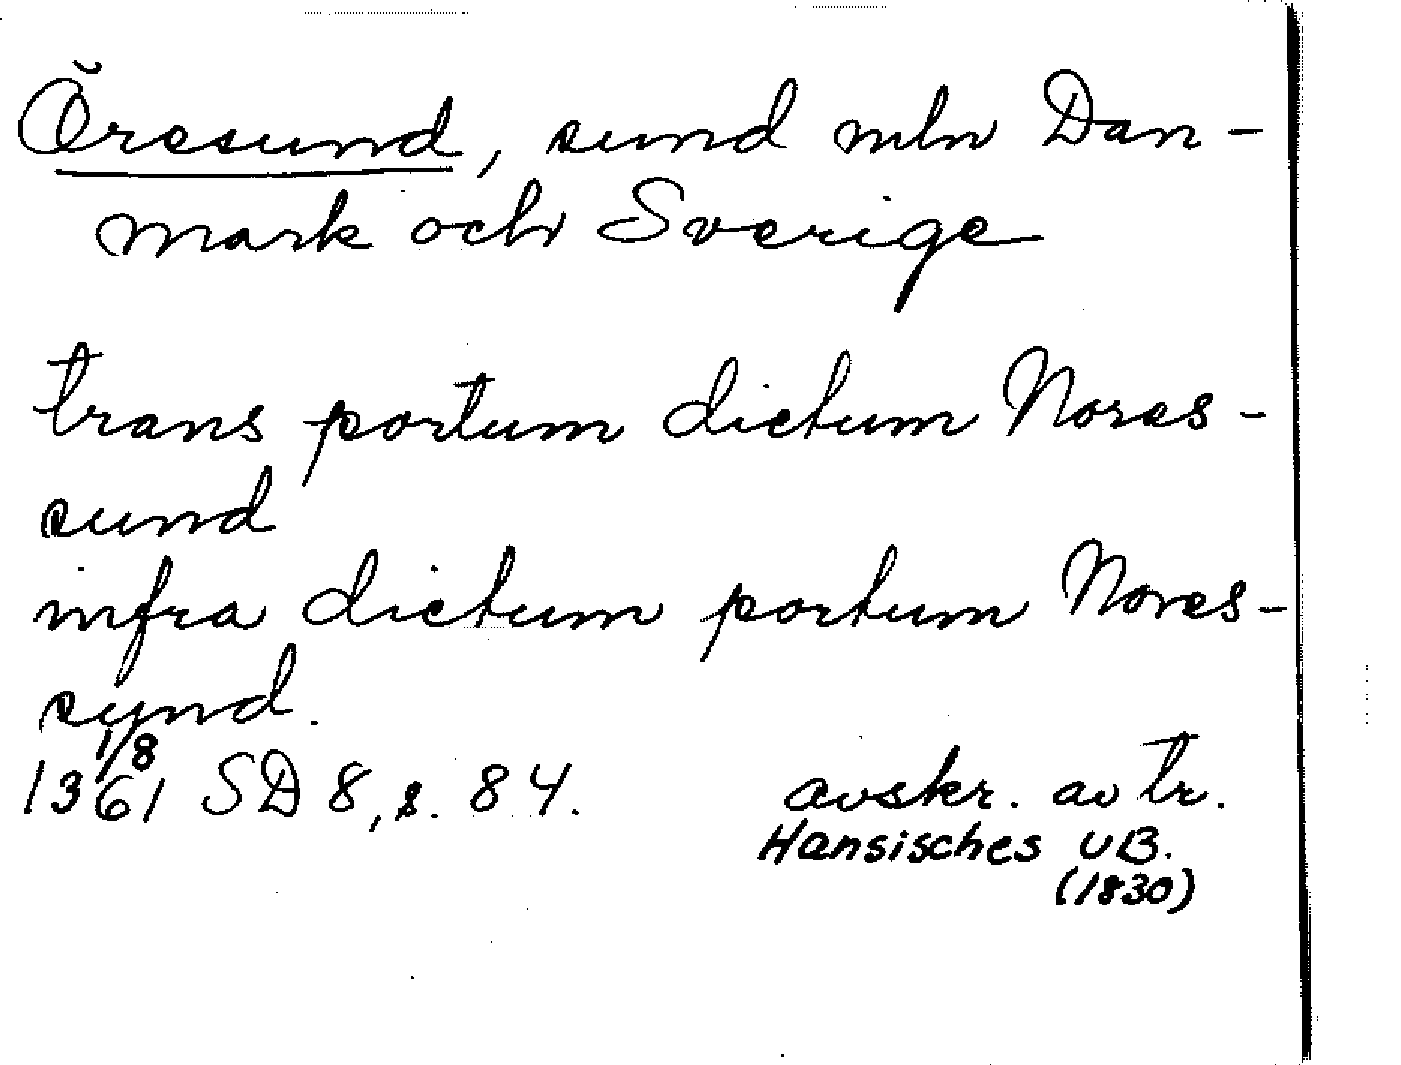 Öresund, sund mln Dan-
mark och Sverige
trans portum dictum Nores-
sund
infra dictum portum Nores-
synd.
1361 1/8 SD 8, s. 84. avskr. av tr.
Hansisches UB.
(1830)